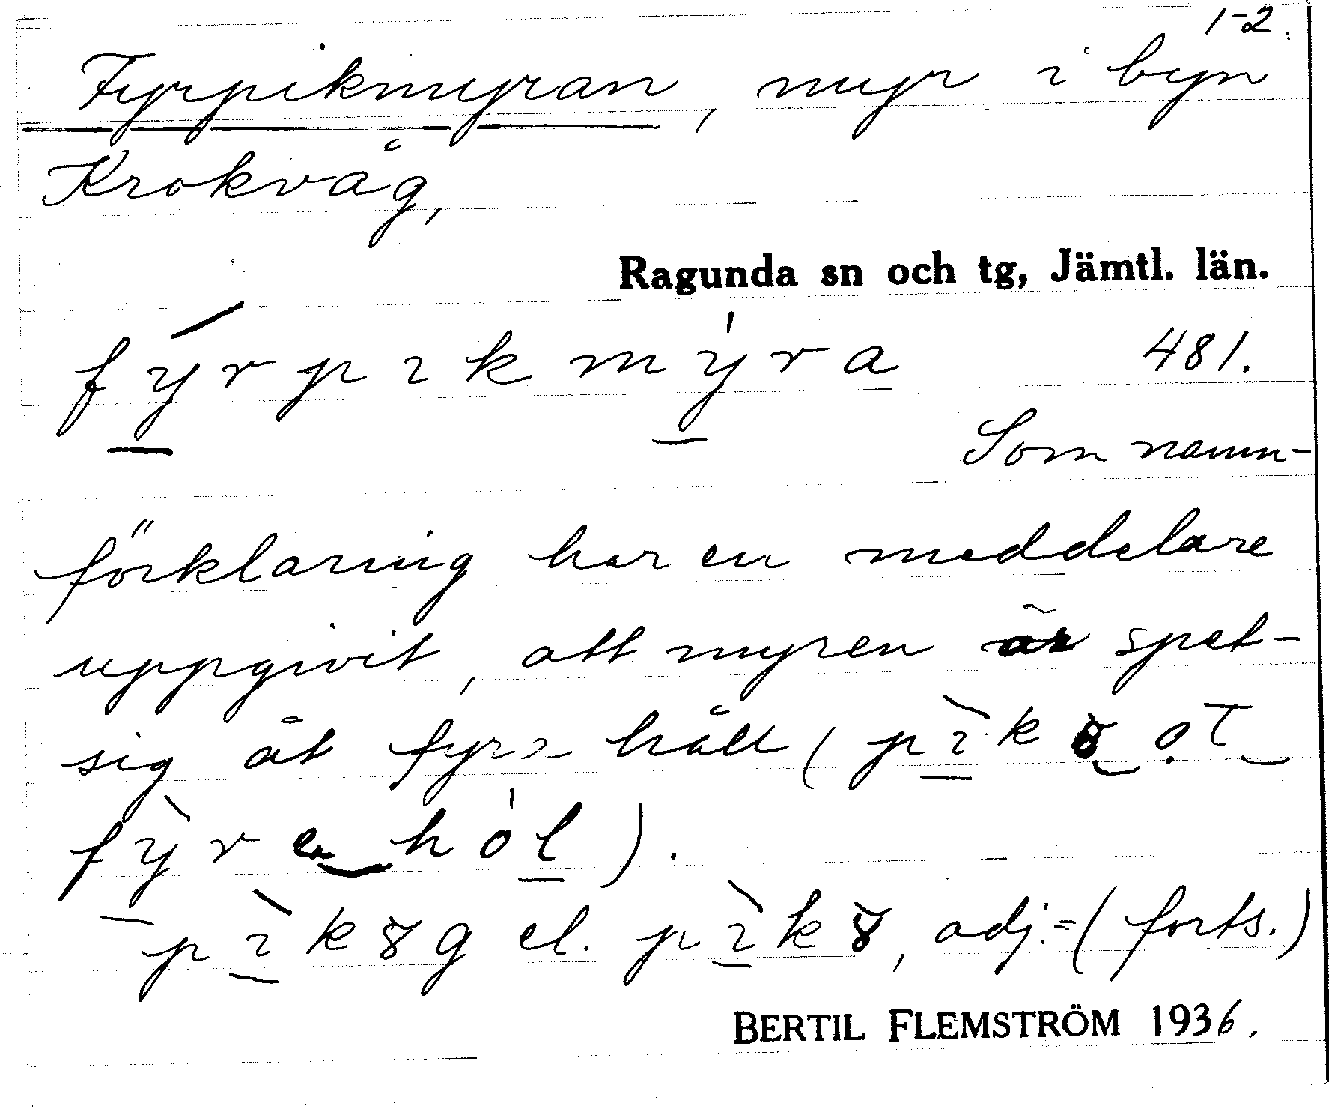 1-2.
Fyrpikmyran, myr i byn
Krokvåg,
Ragunda sn och tg, Jämtl. län.
fý̱rpıkmy̱̍ra 481.
Som namn-
förklaring har en meddelare
uppgivit, att myren är spet-
sig åt fyra håll (pı̱̀kȣ‿ot‿
fỳre‿hó̍l).
– pı̱̀kȣg el. pı̱̀kȣ, adj. = (forts.)
BERTIL FLEMSTRÖM 1936.